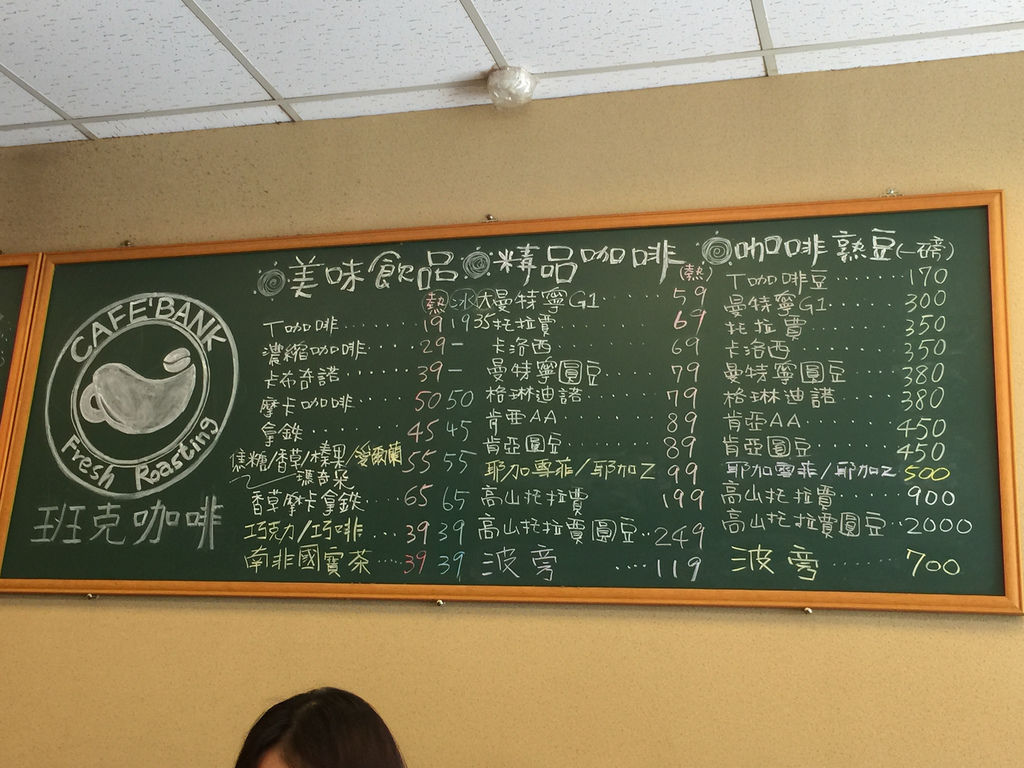 CAFE'BANK
Fresh Roasting
班克咖啡
美味飲品
熱 冰 大
丁咖啡 19 19 35
濃縮咖啡 29 -
卡布奇諾 39 -
摩卡咖啡 50 50
拿鉄 45 45
焦糖/香草/榛果 愛爾蘭 55 55
瑪奇朵
香草摩卡拿鉄 65 65
巧克力/巧啡 39 39
南非國寶茶 39 39
精品咖啡 熱
曼特寧G1 59
托拉賈 69
卡洛西 69
曼特寧圓豆 79
格琳迪諾 79
肯亞AA 89
肯亞圓豆 89
耶加雪菲/耶加Z 99
高山托拉賈 199
高山托拉賈圓豆 249
波旁 119
咖啡熟豆(一磅)
丁咖啡豆 170
曼特寧G1 300
托拉賈 350
卡洛西 350
曼特寧圓豆 380
格琳迪諾 380
肯亞AA 450
肯亞圓豆 450
耶加雪菲/耶加Z 500
高山托拉賈 900
高山托拉賈圓豆 2000
波旁 700